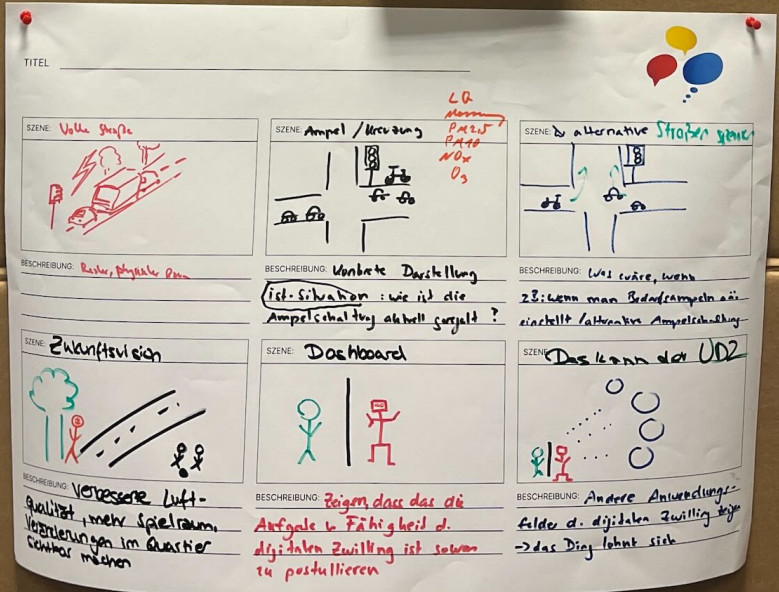 TITEL
LQ
Messung
PM2,5
PM10
NOx
O3
SZENE: Volle Straße
BESCHREIBUNG: Realer, physischer Raum
SZENE: Ampel / Kreuzung
BESCHREIBUNG: Konkrete Darstellung
ist-Situation: wie ist die
Ampelschaltung aktuell geregelt?
SZENE: alternative Straßenszenen
BESCHREIBUNG: Was wäre, wenn
zB: wenn man Bedarfsampeln
einstellt / alternative Ampelschaltung
SZENE: Zukunftsvision
BESCHREIBUNG: Verbesserte Luft-
Qualität, mehr Spielraum,
Veränderungen im Quartier
sichtbar machen
SZENE: Dashboard
BESCHREIBUNG: Zeigen, dass das die
Aufgabe u Fähigkeit d.
digitalen Zwilling ist sowas
zu postullieren
SZENE: Das kann der UDZ
BESCHREIBUNG: Andere Anwendungs-
felder d. digitalen Zwilling zeigen
-> das Ding lohnt sich